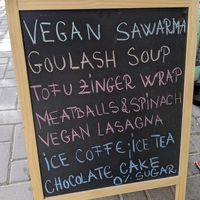 VEGAN SAWARMA
GOULASH SOUP
TOFU ZINGER WRAP
MEATBALLS & SPINACH
VEGAN LASAGNA
ICE COFFE; ICE TEA
CHOCOLATE CAKE
0% SUGAR